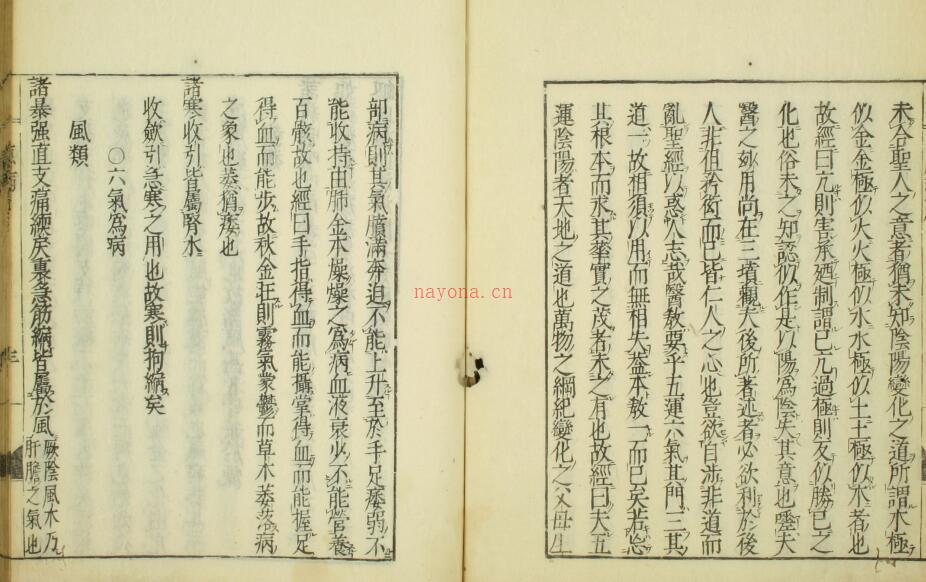 未合聖人之意者猶未知陰陽變化之道所謂木極
似金金極似火火極似水水極似土土極似木者也
故經曰亢則害承廼制謂己亢過極則反似勝己之
化也俗未之知認似作是以陽爲陰失其意也嗟夫
醫之妙用尚在三墳觀夫後所著述者必欲利於後
人非但矜衒而已皆仁人之心也豈欲自涉非道而
亂聖經以惑人志哉醫教要乎五運六氣其門三其
道一故相須以用而無相失蓋本教一而已矣若忘
其根本而求其華實之茂者未之有也故經曰夫五
運陰陽者天地之道也萬物之綱紀變化之父母生
部病則其氣臏滿奔迫不能上升至於手足痿弱不
能收持由肺金本燥燥之爲病血液衰少不能營養
百骸故也經曰手指得血而能攝掌得血而能握足
得血而能步故秋金旺則霧氣蒙鬱而草木萎落病
之象也萎猶痿也
諸寒收引皆屬腎水
收斂引急寒之用也故寒則拘縮矣
○六氣爲病
風類
諸暴强直支痛緛戾裏急筋縮皆屬於風
厥陰風木乃
肝膽之氣也
nayona.cn